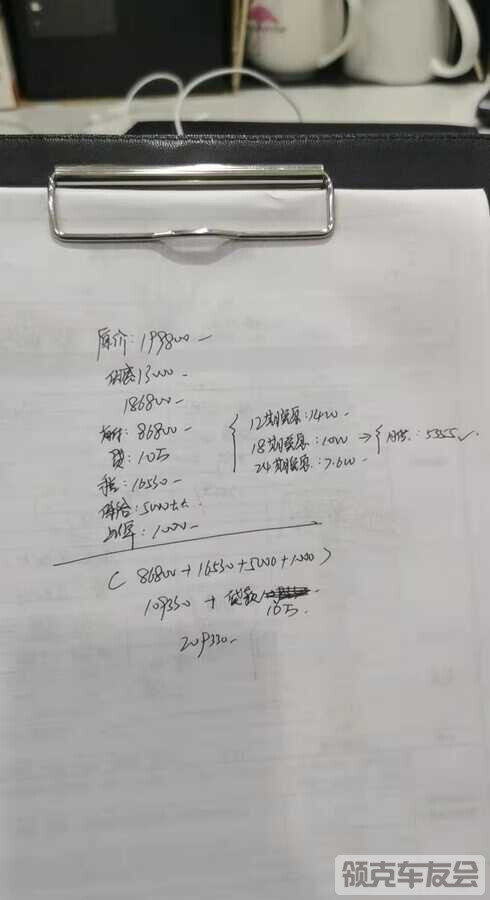 原价:199800-
优惠13000-
186800-
首付:86800-
贷:10万
税:16530-
保险:5000左右.
上牌:1000-
12期贴息:1400-
18期贴息:1000 → 月供:5355✓
24期贴息:7.600-
(86800+16530+5000+1000)
109330 + 贷款
10万.
209330-
领克车友会